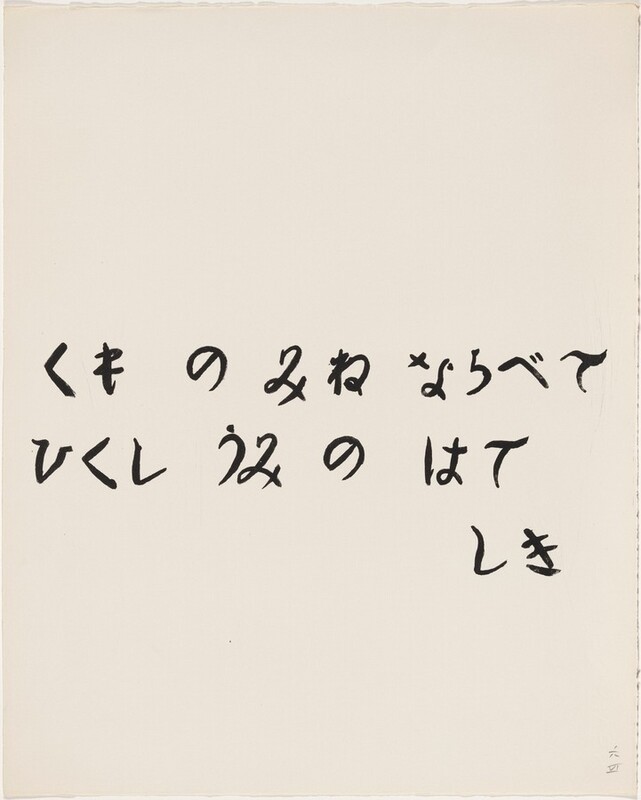 くも の みね ならべて
ひくし うみ の はて
しき
六
VI